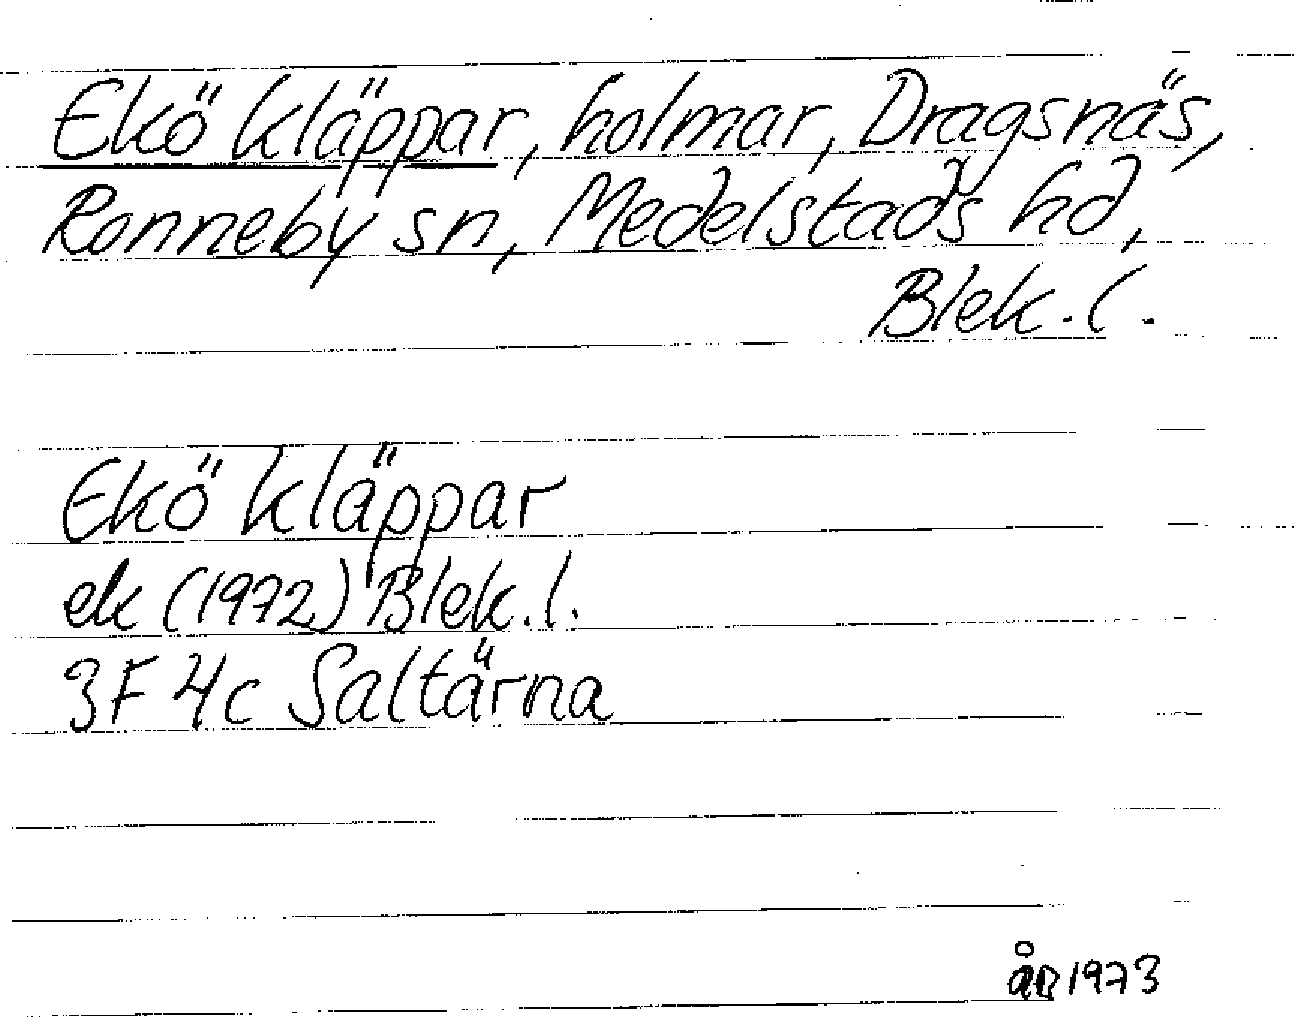 Ekö kläppar, holmar, Dragsnäs,
Ronneby sn, Medelstads hd,
Blek. l.
Ekö kläppar
ek (1972) Blek. l.
3F 4c Saltärna
1973